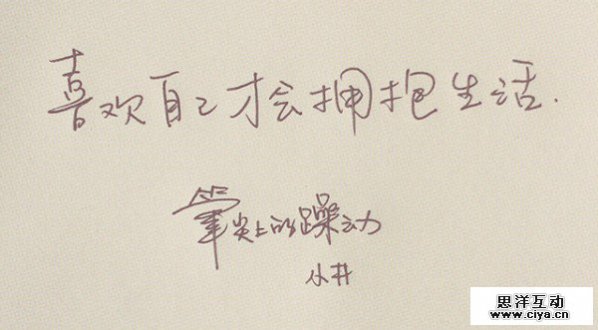 喜欢自己才会拥抱生活.
笔尖上的躁动
小井
思洋互动
www.ciya.cn